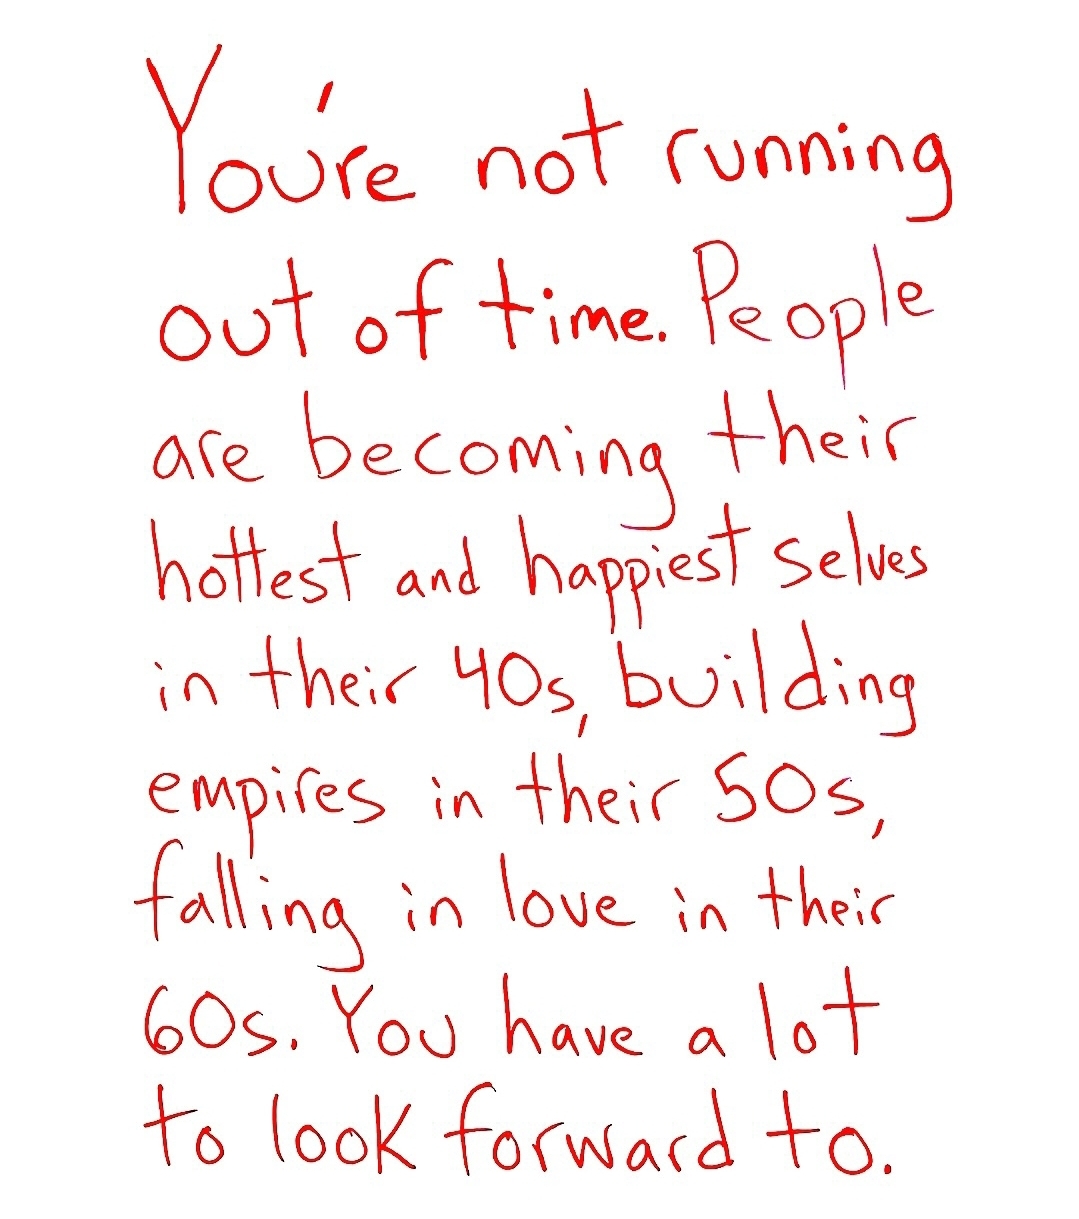 You're not running
out of time. People
are becoming their
hottest and happiest selves
in their 40s, building
empires in their 50s,
falling in love in their
60s. You have a lot
to look forward to.